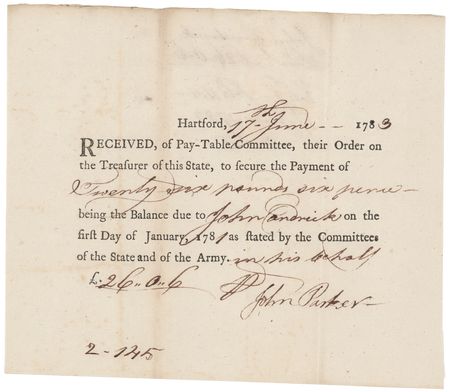 Hartford, 17th June -- 1783
RECEIVED, of Pay-Table Committee, their Order on
the Treasurer of this State, to secure the Payment of
Twenty six pounds six pence
being the Balance due to John on the
first Day of January, 1781 as stated by the Committees
of the State and of the Army. in his behalf
£. 26..0..6
John Parker
2 - 145